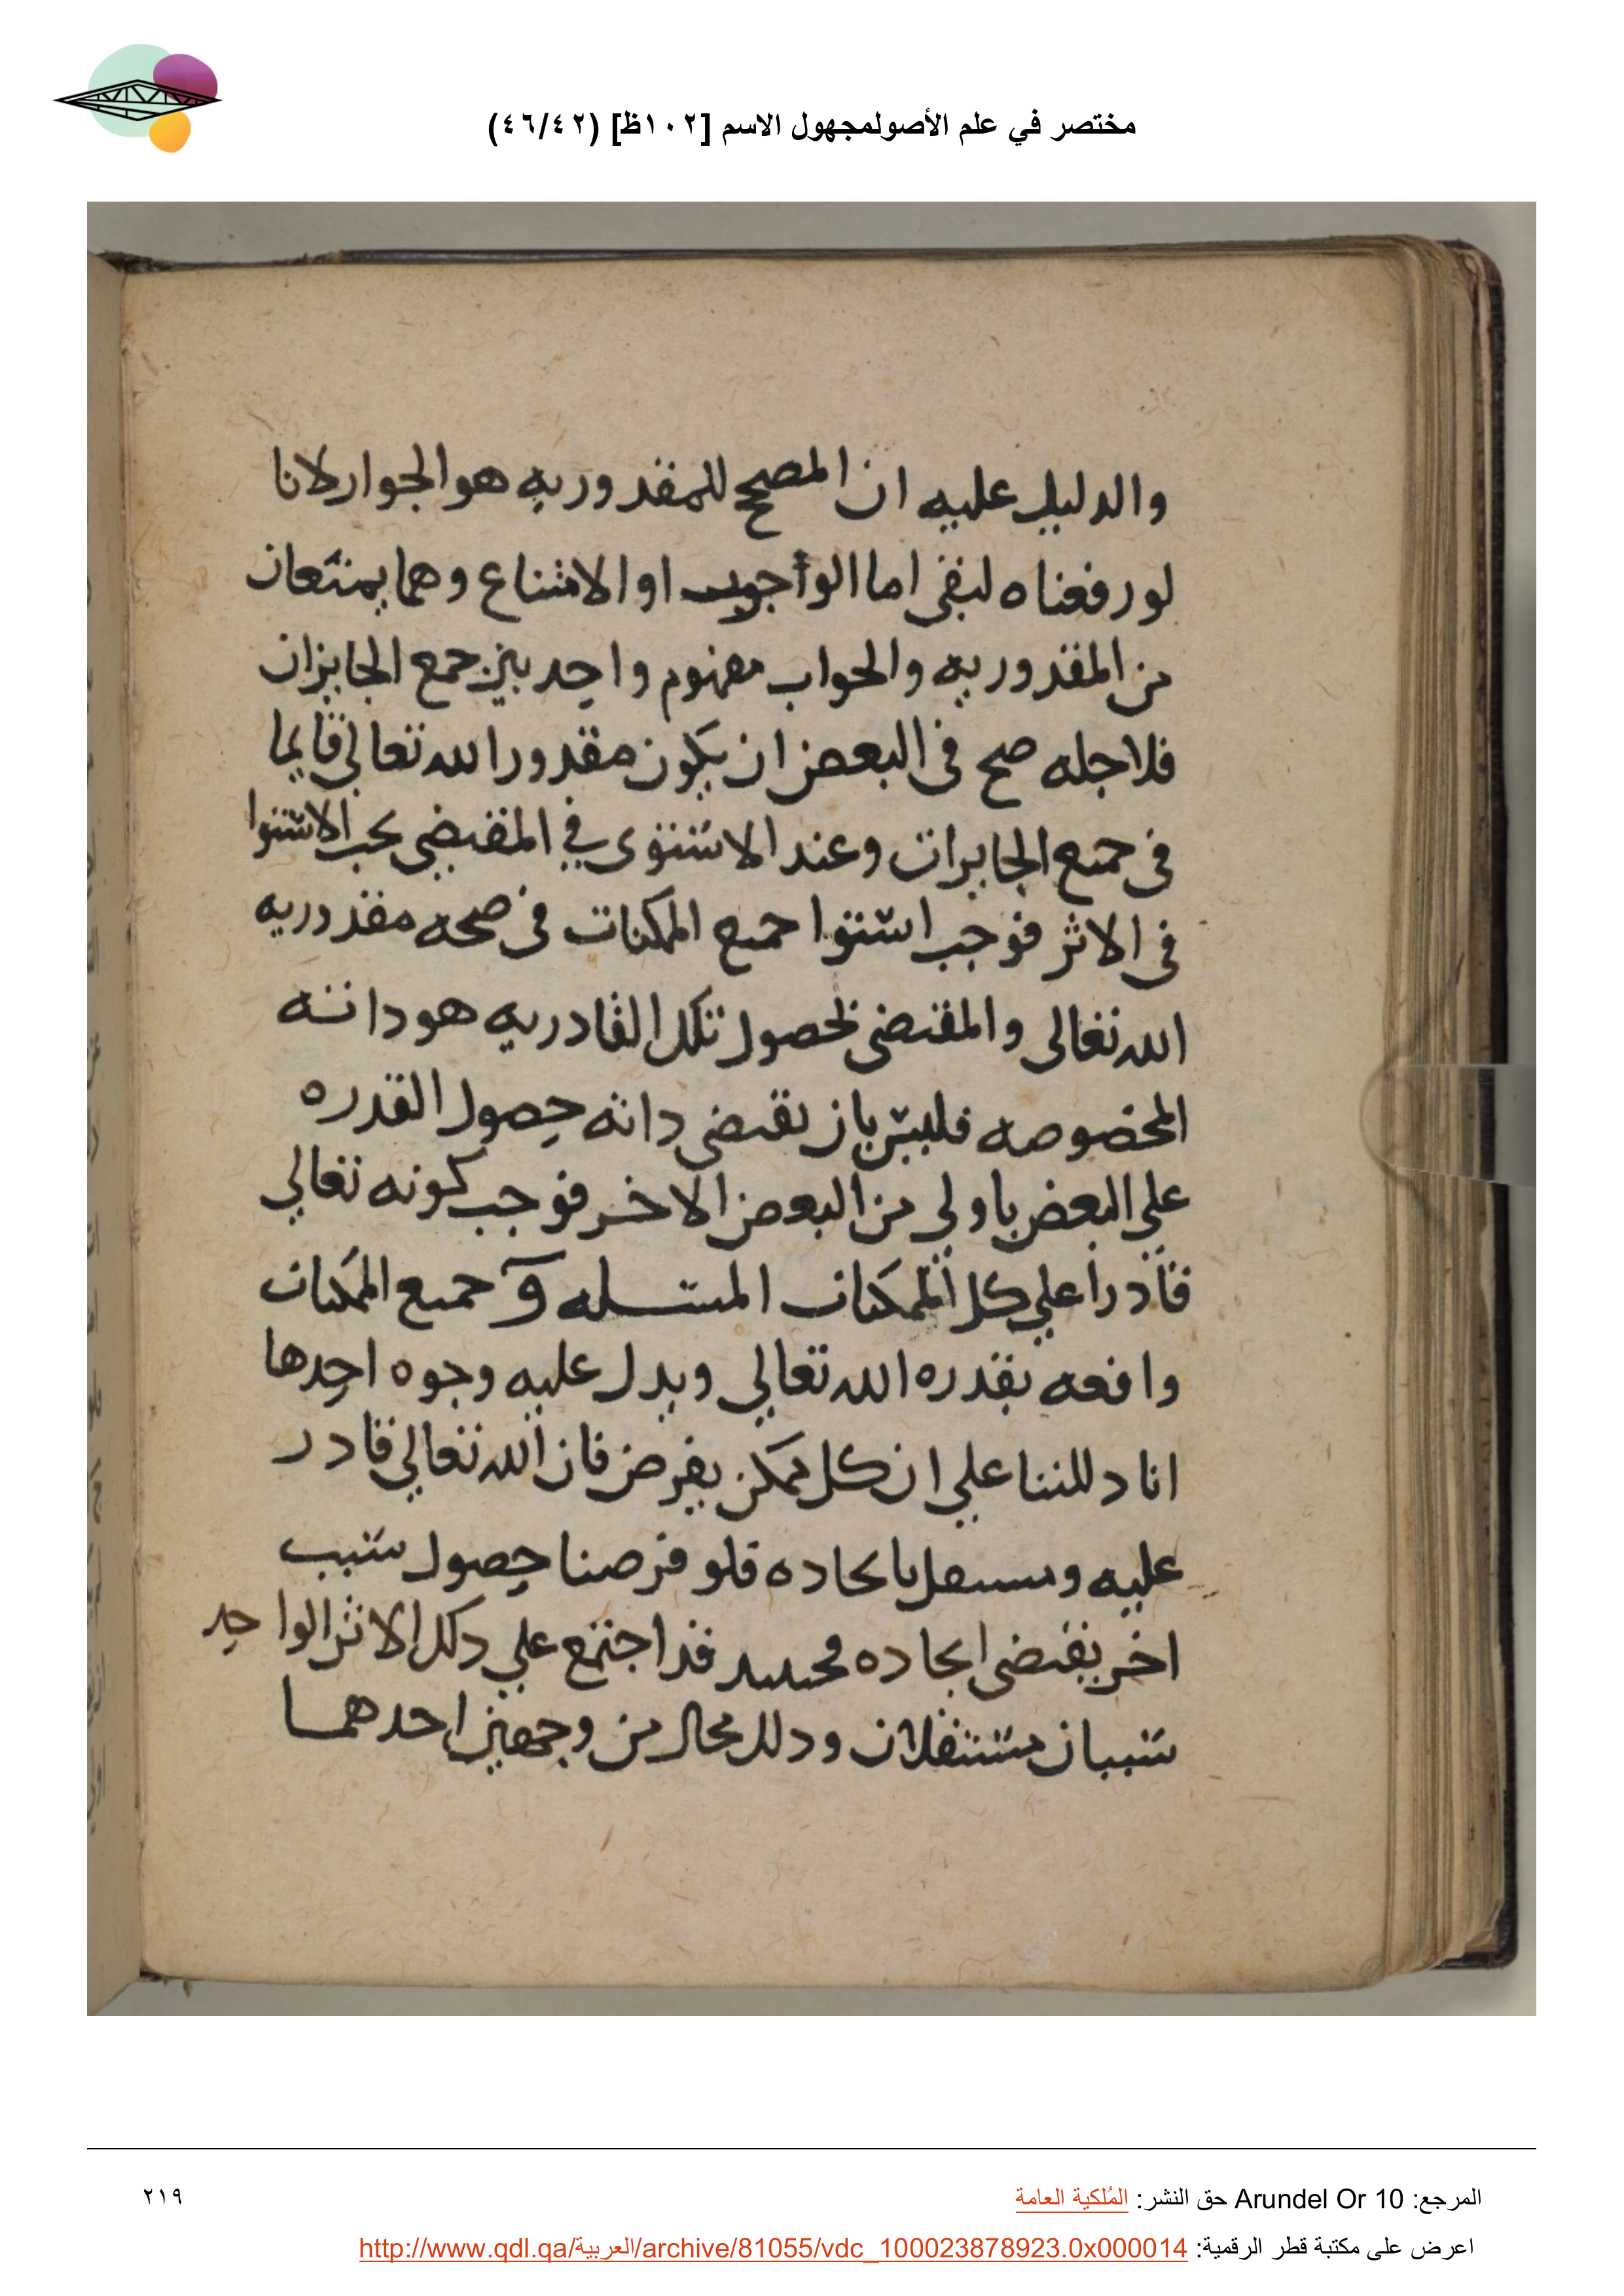 مختصر في علم الأصولمجهول الاسم [١٠٢ظ] (٤٦/٤٢)
والدليل عليه ان المصحح للمقدوريه هو الجواز لانا
لو رفعناه لبقى اما الواجوب او الامتناع وهما يمنتعان
من المقدوريه والجواب مفهوم واحد بين جمع الجايزان
فلاجله صح فى البعض ان يكون مقدورا لله تعالى قايما
فى جميع الجايزات وعند الاستوى في المقتضى يجب الاستوا
فى الاثر فوجب استوا جميع الممكنات فى صحه مقدوريه
الله تعالى والمقتضى لحصول تلك القادريه هو داته
المخصوصه فليس بان يقتضى داته حصول القدره
على البعض باولى من البعض الاخر فوجب كونه تعالى
قادرا على كل الممكنات المسله و جميع الممكنات
واقعه بقدره الله تعالى ويدل عليه وجوه احدها
انا دللنا على ان كل ممكن يفرض فان الله تعالى قادر
عليه ومستقل بايجاده فلو فرضنا حصول سبب
اخر يقتضى ايجاده فحينيد قد اجتمع على دلك الاثر الواحد
سببان مستقلان ودلك محال من وجهين احدهما
المرجع: Arundel Or 10 حق النشر: المُلكية العامة
٢١٩
اعرض على مكتبة قطر الرقمية: http://www.qdl.qa/العربية/archive/81055/vdc_100023878923.0x000014